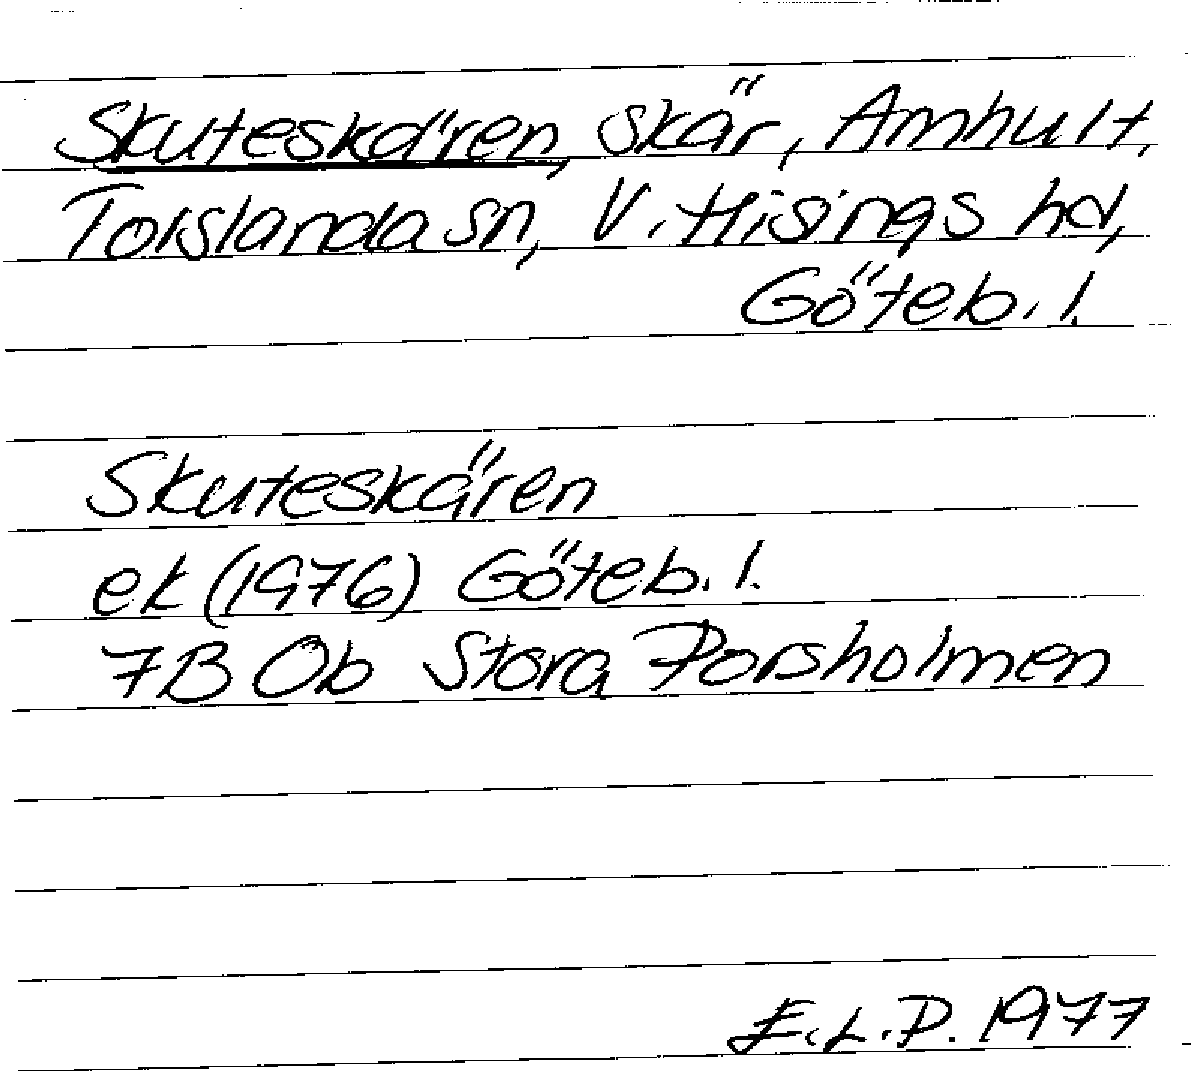 Skuteskären, skär, Amhult,
Torslanda sn, V. Hisings hd,
Göteb. l.
Skuteskären
ek (1976) Göteb. l.
7B Ob Stora Porsholmen
E.L.P. 1977